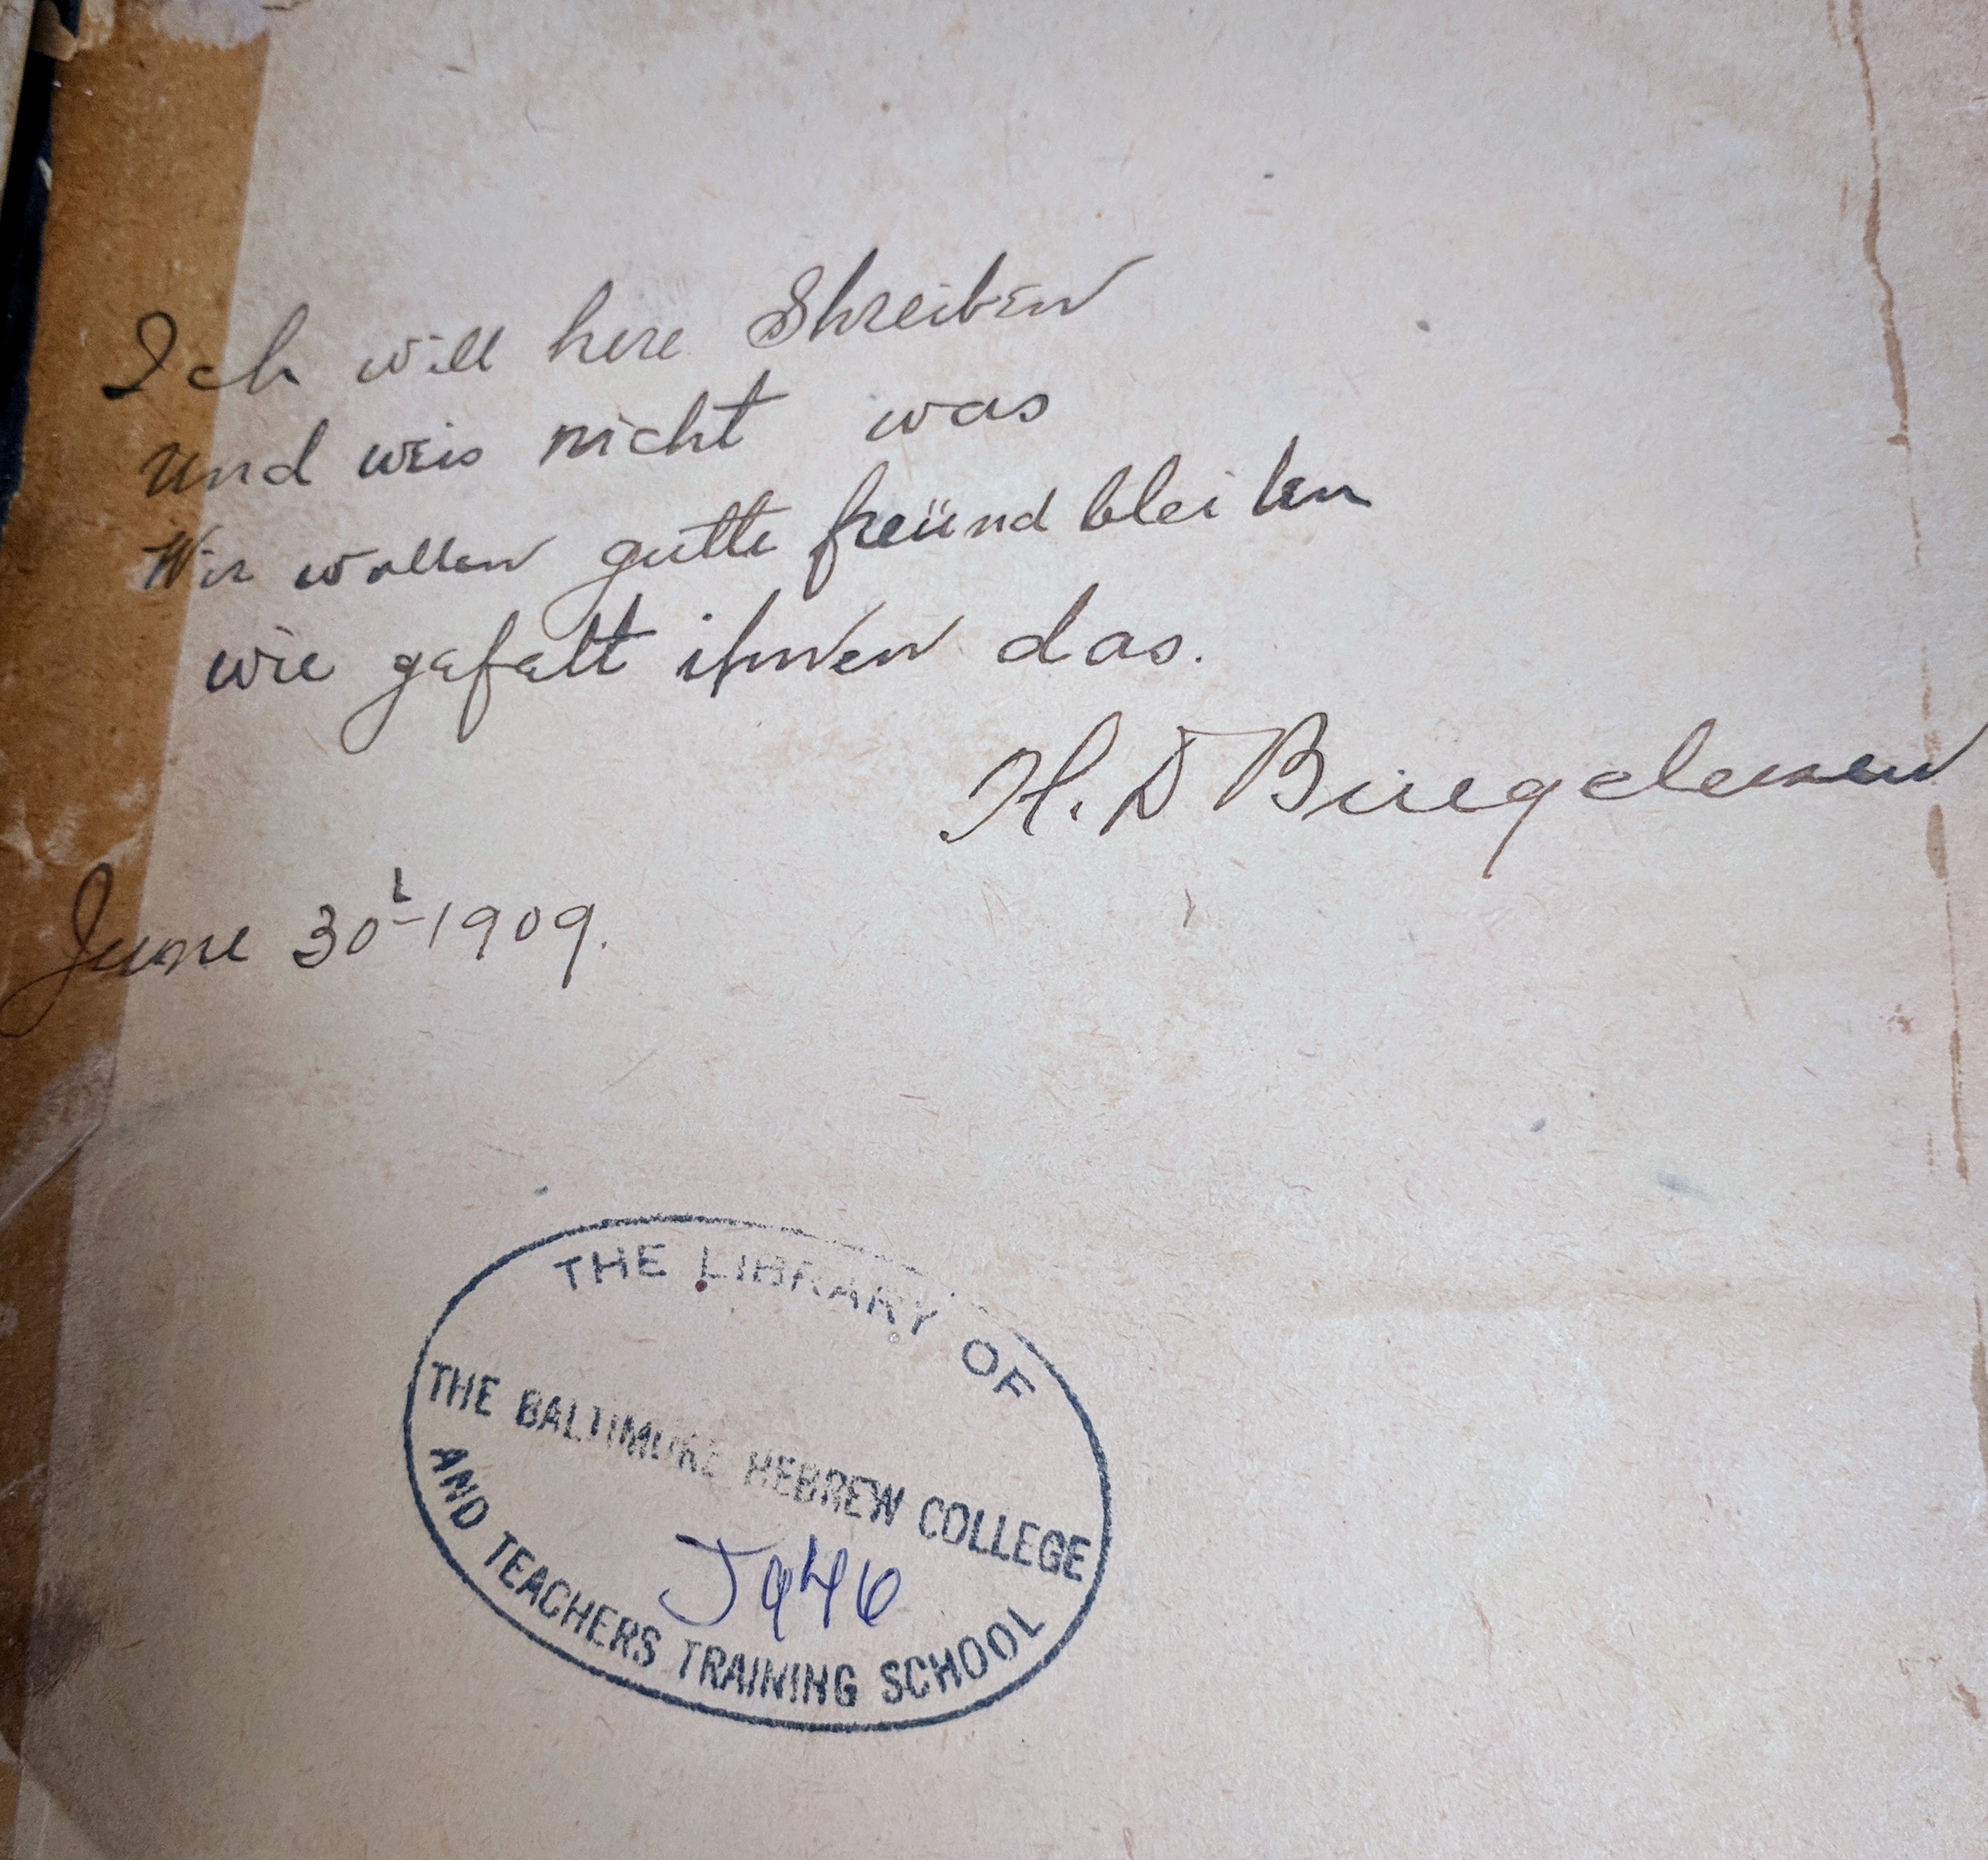 Ich will here Shreiben
und weis nicht was
Wir wollen gutte freünd bleiben
wie gefalt ihnen das.
H. D
June 30 1909.
THE LIBRARY OF
THE BALTIMORE HEBREW COLLEGE
J946
AND TEACHERS TRAINING SCHOOL